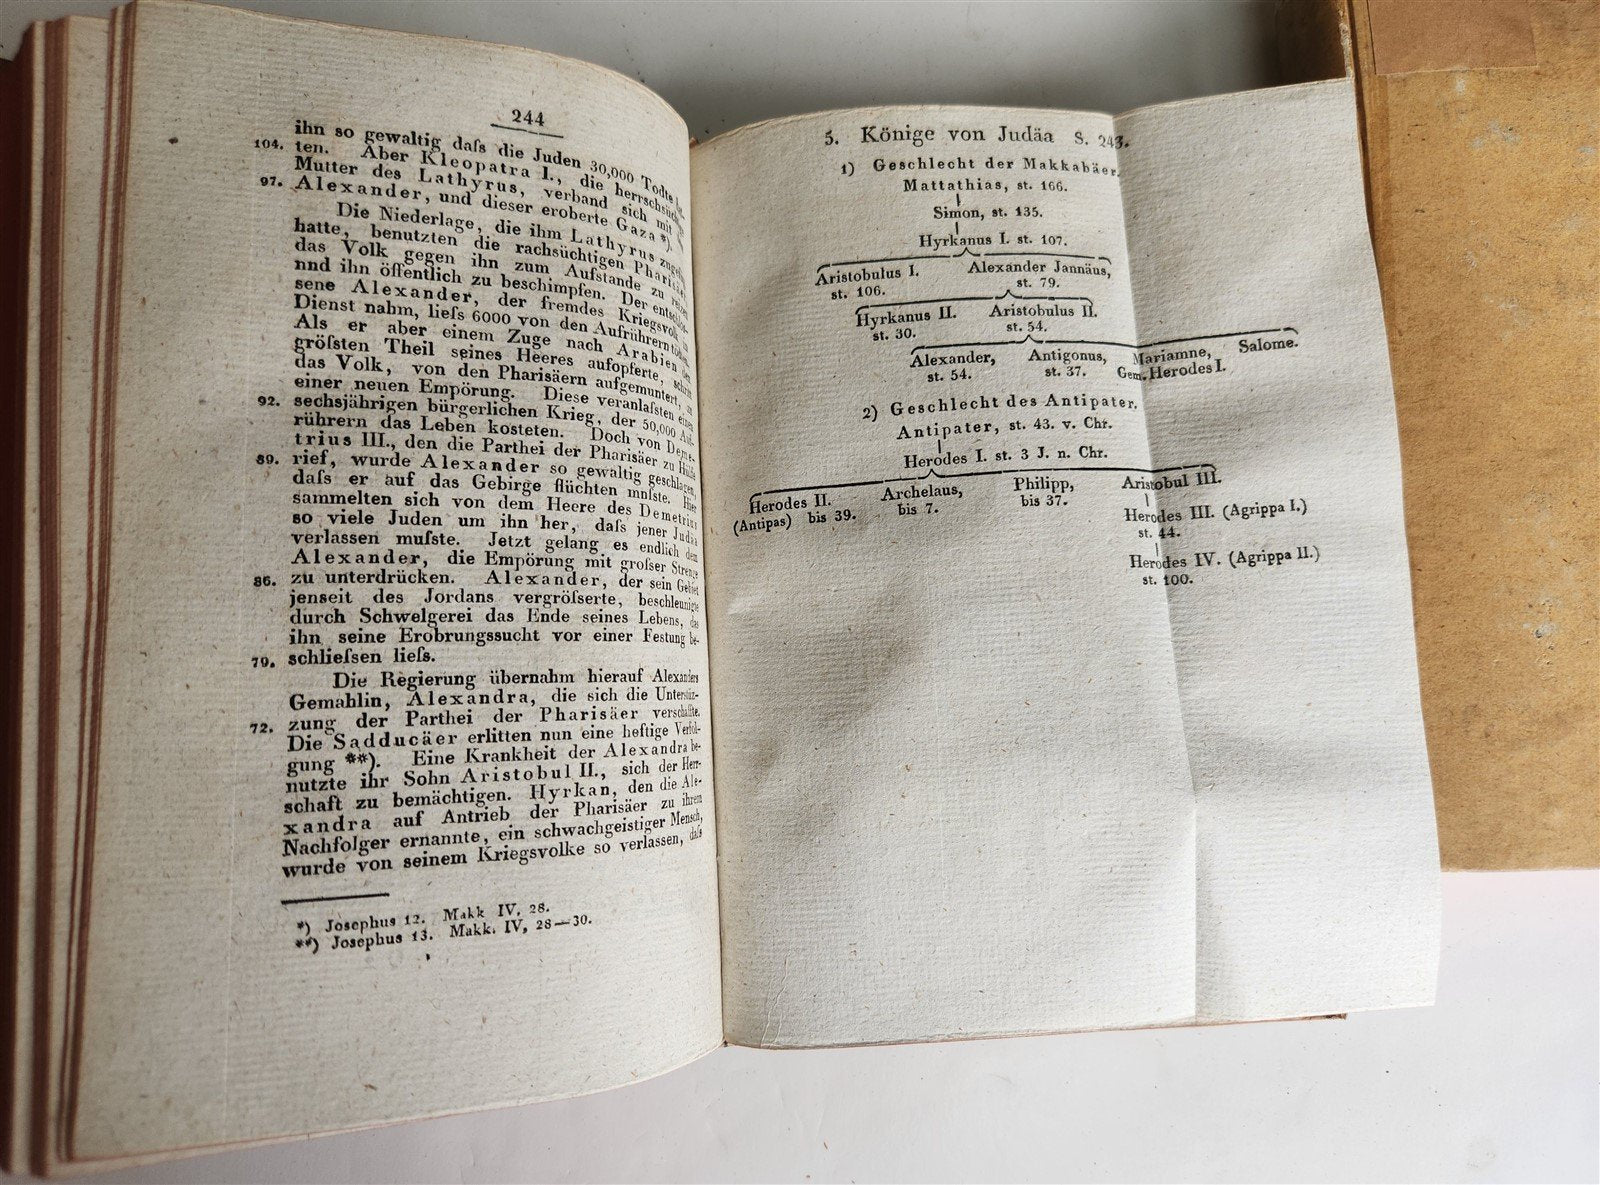 244
ihn so gewaltig daſs die Juden 30,000 Todte
104. ten. Aber Kleopatra I., die herrschsüch-
Mutter des Lathyrus, verband sich mit
97. Alexander, und dieser eroberte Gaza *).
Die Niederlage, die ihm Lathyrus zugefügt
hatte, benutzten die rachsüchtigen Pharisäer
das Volk gegen ihn zum Aufstande zu reizen
nnd ihn öffentlich zu beschimpfen. Der entschlos-
sene Alexander, der fremdes Kriegsvolk in
Dienst nahm, lieſs 6000 von den Aufrührern tödten.
Als er aber einem Zuge nach Arabien den
gröſsten Theil seines Heeres aufopferte, schritt
das Volk, von den Pharisäern aufgemuntert, zu
einer neuen Empörung. Diese veranlaſsten einen
92. sechsjährigen bürgerlichen Krieg, der 50,000 Auf-
rührern das Leben kosteten. Doch von Deme-
trius III., den die Parthei der Pharisäer zu Hülfe
89. rief, wurde Alexander so gewaltig geschlagen,
daſs er auf das Gebirge flüchten mnſste. Hier
sammelten sich von dem Heere des Demetrius
so viele Juden um ihn her, daſs jener Judäa
verlassen muſste. Jetzt gelang es endlich dem
Alexander, die Empörung mit groſser Strenge
86. zu unterdrücken. Alexander, der sein Gebiet
jenseit des Jordans vergröſserte, beschleunigte
durch Schwelgerei das Ende seines Lebens, das
ihn seine Erobrungssucht vor einer Festung be-
79. schlieſsen lieſs.
Die Regierung übernahm hierauf Alexanders
Gemahlin, Alexandra, die sich die Unterstüz-
72. zung der Parthei der Pharisäer verschaffte.
Die Sadducäer erlitten nun eine heftige Verfol-
gung **). Eine Krankheit der Alexandra be-
nutzte ihr Sohn Aristobul II., sich der Herr-
schaft zu bemächtigen. Hyrkan, den die Ale-
xandra auf Antrieb der Pharisäer zu ihrem
Nachfolger ernannte, ein schwachgeistiger Mensch,
wurde von seinem Kriegsvolke so verlassen, daſs
*) Josephus 12. Makk IV. 28.
**) Josephus 13. Makk. IV, 28—30.
5. Könige von Judäa S. 243.
1) Geschlecht der Makkabäer.
Mattathias, st. 166.
Simon, st. 135.
Hyrkanus I. st. 107.
Aristobulus I. Alexander Jannäus,
st. 106. st. 79.
Hyrkanus II. Aristobulus II.
st. 30. st. 54.
Alexander, Antigonus, Mariamne, Salome.
st. 54. st. 37. Gem. Herodes I.
2) Geschlecht des Antipater.
Antipater, st. 43. v. Chr.
Herodes I. st. 3 J. n. Chr.
Herodes II. Archelaus, Philipp, Aristobul III.
(Antipas) bis 39. bis 7. bis 37.
Herodes III. (Agrippa I.)
st. 44.
Herodes IV. (Agrippa II.)
st. 100.